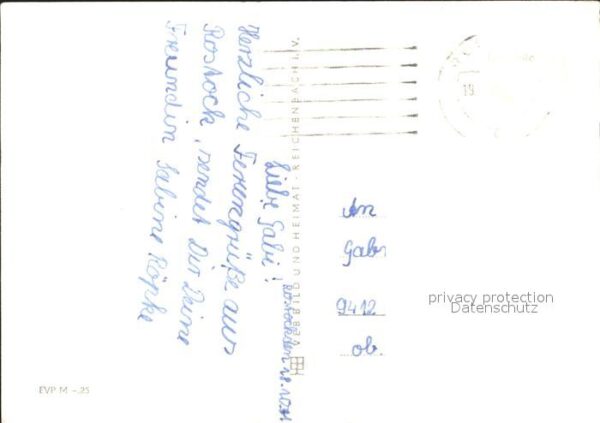 Rostock, den 28.10.71
Liebe Gabi!
Herzliche Feriengrüße aus
Rostock, sendet Dir Deine
Freundin Sabine Köpke
BILD UND HEIMAT · REICHENBACH I. V.
An
Gabi
9412
privacy protection
Datenschutz
EVP M -.25
19